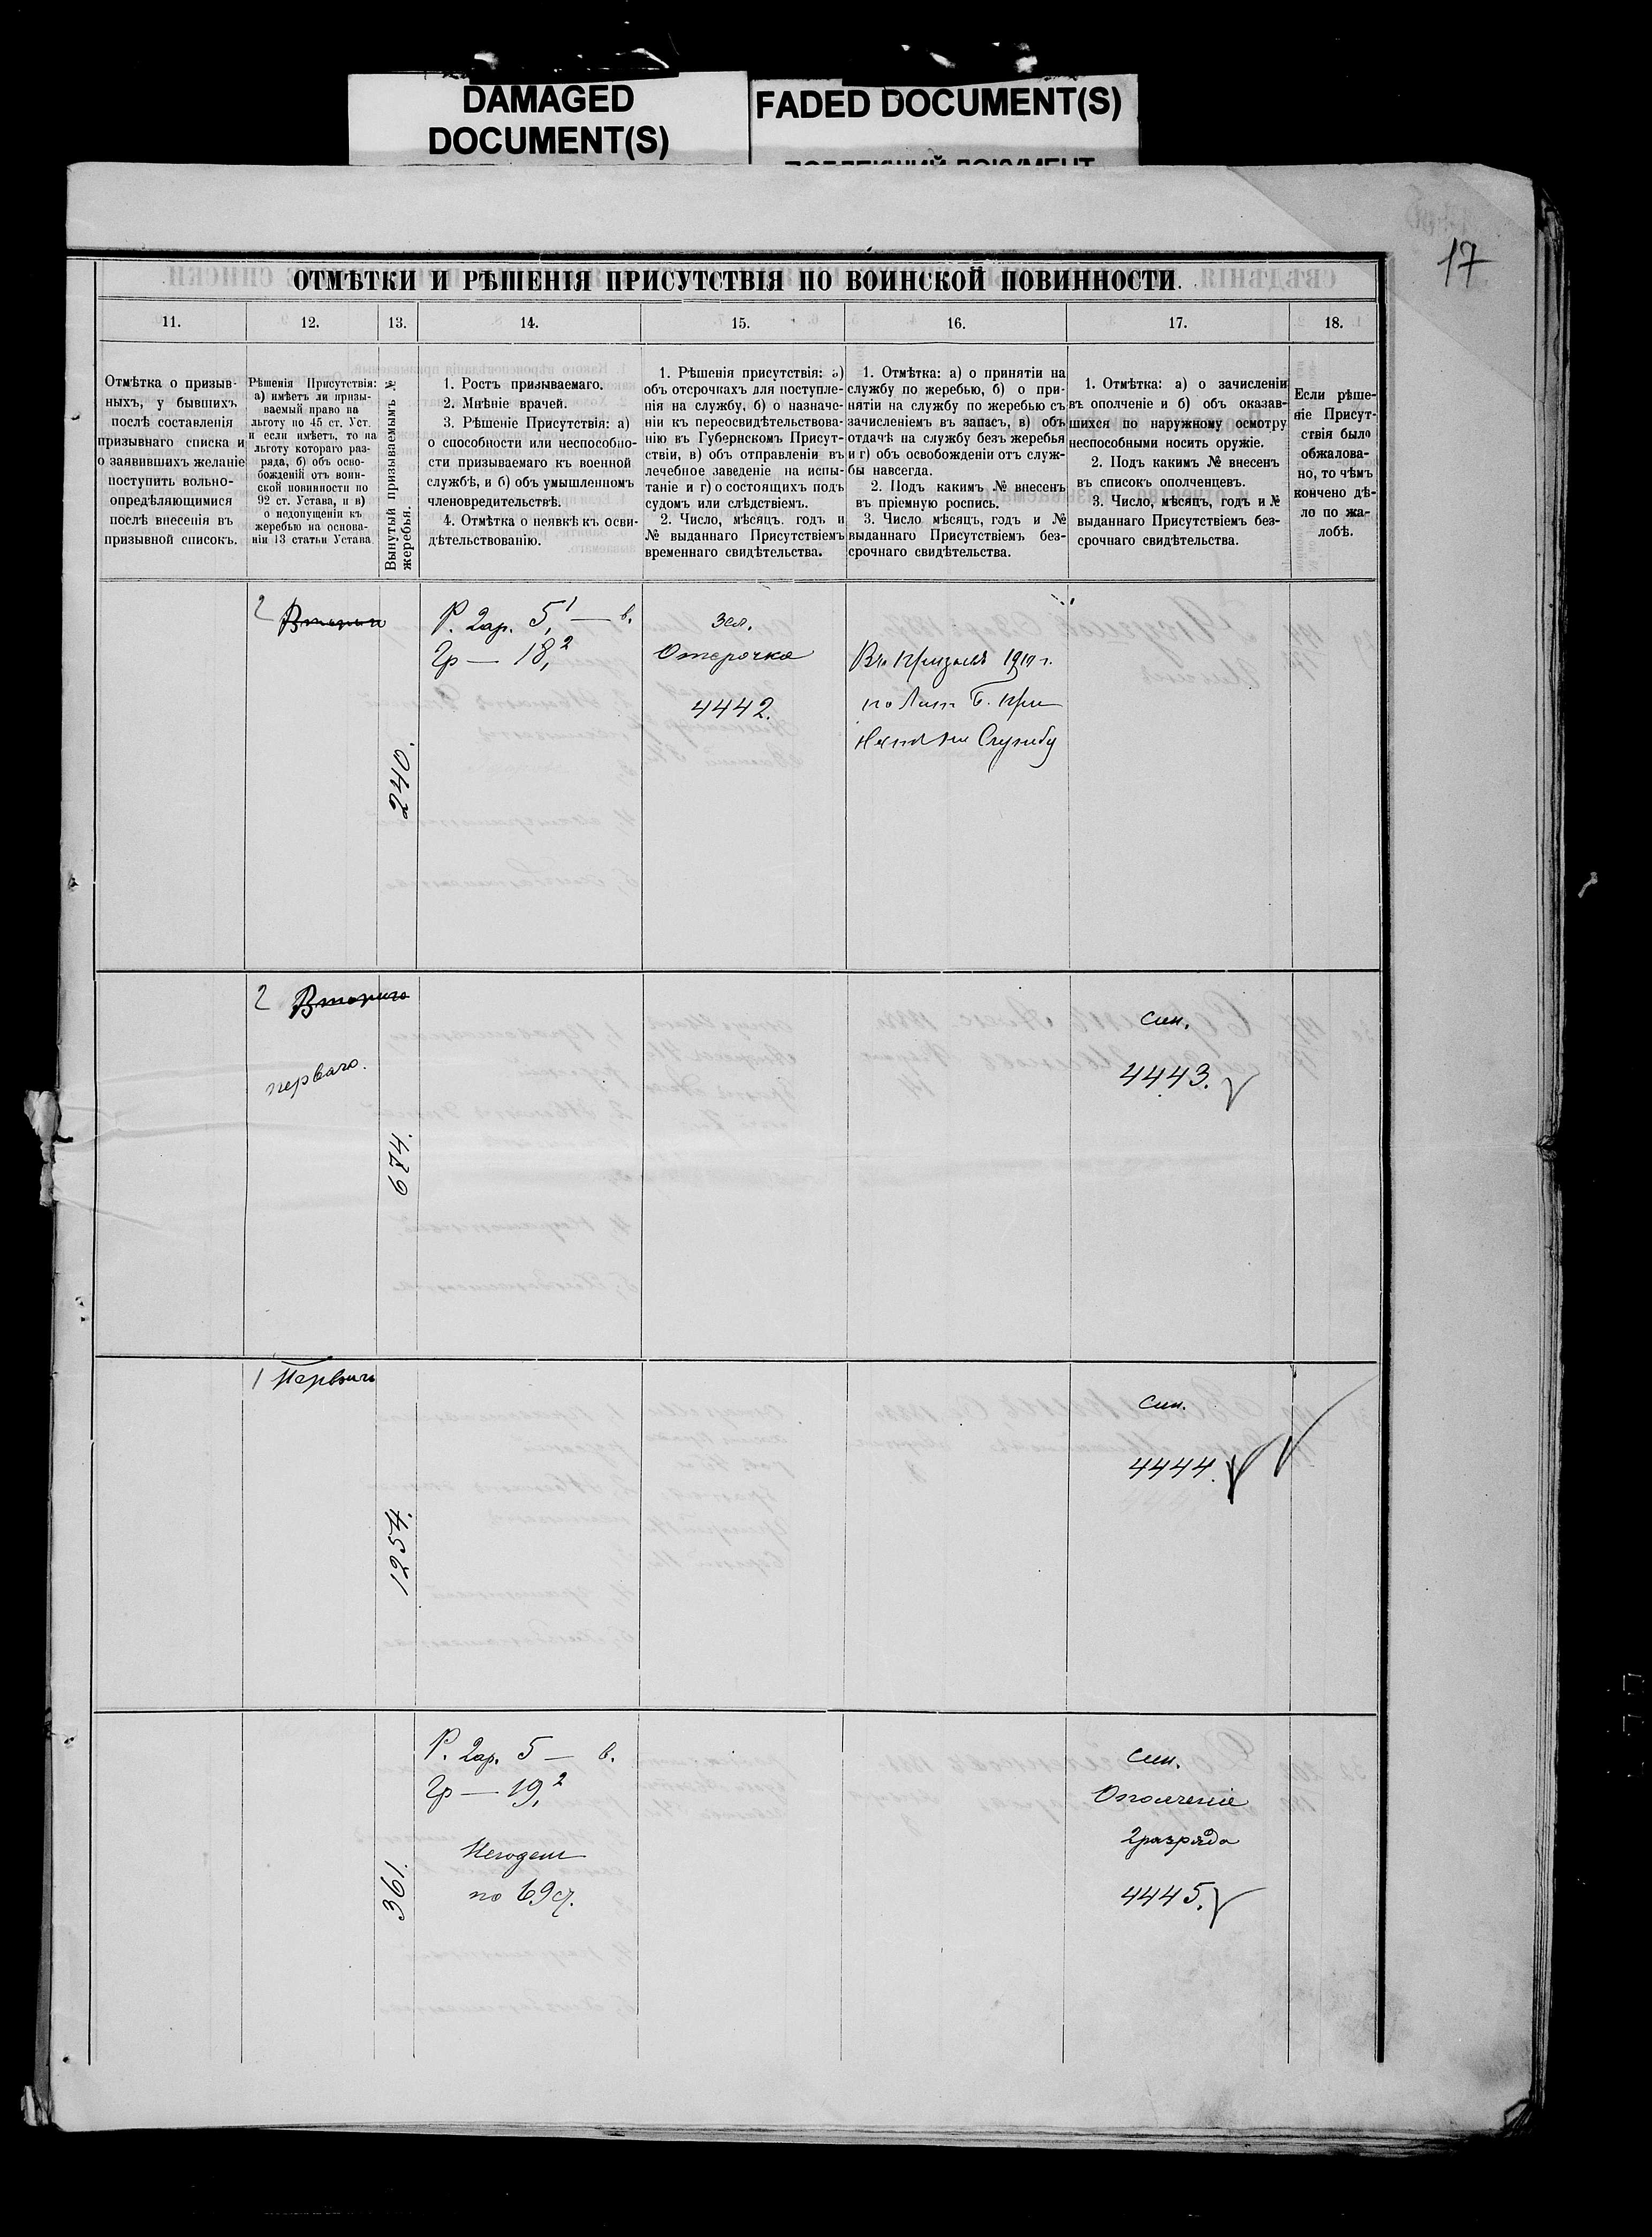 DAMAGED
DOCUMENT(S)
FADED DOCUMENT(S)
17
ОТМѢТКИ И РѢШЕНІЯ ПРИСУТСТВІЯ ПО ВОИНСКОЙ ПОВИННОСТИ.
11. 12. 13. 14. 15. 16. 17. 18.
Отмѣтка о призыв-
ныхъ, у бывшихъ
послѣ составленія
призывнаго списка и
о заявившихъ желаніе
поступить вольно-
опредѣляющимися
послѣ внесенія въ
призывной списокъ.
Рѣшенія Присутствія:
а) имѣетъ ли призы-
ваемый право на
льготу по 45 ст. Уст.
и если имѣетъ, то на
льготу котораго раз-
ряда, б) объ осво-
божденіи отъ воин-
ской повинности по
92 ст. Устава, и в)
о недопущеніи къ
жеребью на основа-
ніи 13 статьи Устава
Вынутый призываемымъ №
жеребья.
1. Ростъ призываемаго.
2. Мнѣніе врачей.
3. Рѣшеніе Присутствія: а)
о способности или неспособно-
сти призываемаго къ военной
службѣ, и б) объ умышленномъ
членовредительствѣ.
4. Отмѣтка о неявкѣ къ осви-
дѣтельствованію.
1. Рѣшенія присутствія: а)
объ отсрочкахъ для поступле-
нія на службу, б) о назначе-
ніи къ переосвидѣтельствова-
нію въ Губернскомъ Присут-
ствіи, в) объ отправленіи въ
лечебное заведеніе на испы-
таніе и г) о состоящихъ подъ
судомъ или слѣдствіемъ.
2. Число, мѣсяцъ. годъ и
№ выданнаго Присутствіемъ
временнаго свидѣтельства.
1. Отмѣтка: а) о принятіи на
службу по жеребью, б) о при-
нятіи на службу по жеребью съ
зачисленіемъ въ запасъ, в) объ
отдачѣ на службу безъ жеребья
и г) объ освобожденіи отъ служ-
бы навсегда.
2. Подъ какимъ № внесенъ
въ пріемную роспись.
3. Число мѣсяцъ, годъ и №
выданнаго Присутствіемъ без-
срочнаго свидѣтельства.
1. Отмѣтка: а) о зачисленіи
въ ополченіе и б) объ оказав-
шихся по наружному осмотру
неспособными носить оружіе.
2. Подъ какимъ № внесенъ
въ списокъ ополченцевъ.
3. Число, мѣсяцъ, годъ и №
выданнаго Присутствіемъ без-
срочнаго свидѣтельства.
Если рѣше-
ніе Присут-
ствія было
обжалова-
но, то чѣмъ
кончено дѣ-
ло по жа-
лобѣ.
2
240.
Р. 2ар. 5,1 — в.
Гр — 18,2
зел.
Отсрочка
4442.
Въ призывъ 1910 г.
по Лит Б. при
Службу
2 Второго
перваго.
674.
син.
4443.
1 Перваго
1254.
син.
4444.
361.
Р. 2ар. 5 — в.
Гр — 19,2
Негоденъ
по 69 ст.
син.
Ополченіе
2 разряда
4445.